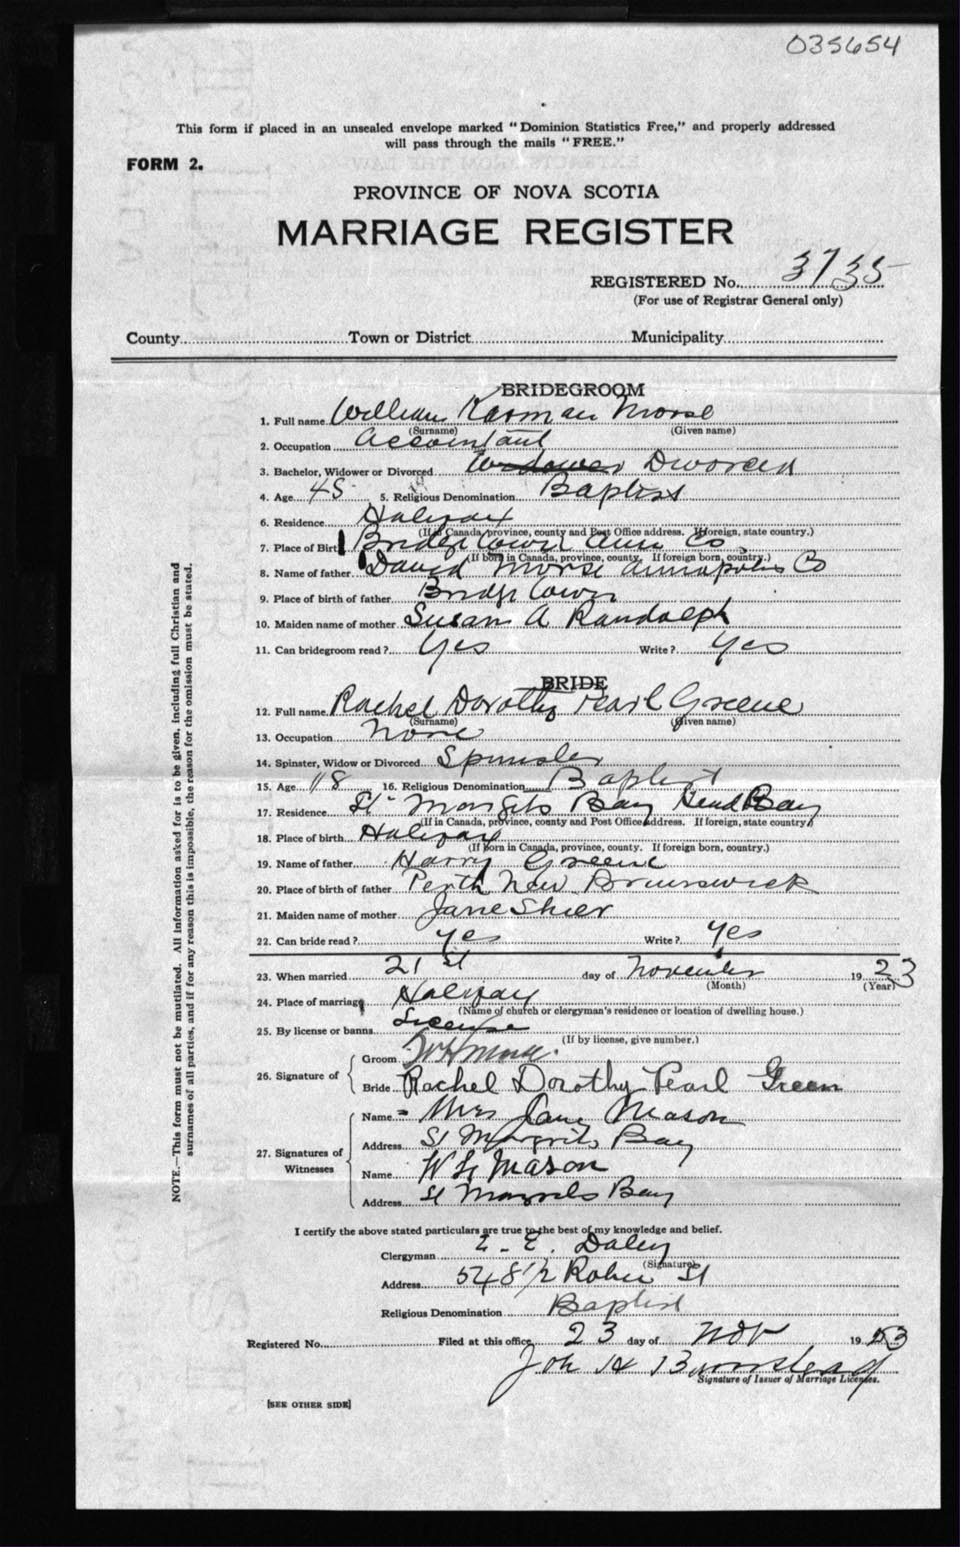 035654
This form if placed in an unsealed envelope marked "Dominion Statistics Free," and properly addressed
will pass through the mails "FREE."
FORM 2.
PROVINCE OF NOVA SCOTIA
MARRIAGE REGISTER
REGISTERED No. 3735
(For use of Registrar General only)
County Town or District Municipality
BRIDEGROOM
1. Full name William Morse
(Surname) (Given name)
2. Occupation Accountant
3. Bachelor, Widower or Divorced Widower Divorced
4. Age 45 5. Religious Denomination Baptist
6. Residence Halifax
(If in Canada, province, county and Post Office address. If foreign, state country.)
7. Place of Birth Bridgetown Ann Co
(If born in Canada, province, county. If foreign born, country.)
8. Name of father David Morse Annapolis Co
9. Place of birth of father Bridgetown
10. Maiden name of mother Susan A Randolph
11. Can bridegroom read? Yes Write? Yes
BRIDE
12. Full name Rachel Dorothy Pearl Greene
(Surname) (Given name)
13. Occupation None
14. Spinster, Widow or Divorced Spinster
15. Age 18 16. Religious Denomination Baptist
17. Residence St Margrets Bay Head Bay
(If in Canada, province, county and Post Office address. If foreign, state country)
18. Place of birth Halifax
(If born in Canada, province, county. If foreign born, country.)
19. Name of father Harry Greene
20. Place of birth of father Perth New Brunswick
21. Maiden name of mother Jane Shier
22. Can bride read? yes Write? Yes
23. When married 21st day of November 1923
(Month) (Year)
24. Place of marriage Halifax
(Name of church or clergyman's residence or location of dwelling house.)
25. By license or banns License
(If by license, give number.)
26. Signature of
Groom W H Morse
Bride Rachel Dorothy Pearl Green
27. Signatures of Witnesses
Name Mrs Jane Mason
Address St Margrets Bay
Name W H Mason
Address St Margrets Bay
I certify the above stated particulars are true to the best of my knowledge and belief.
Clergyman E. E. Daley
(Signature)
Address 548 1/2 Robie St
Religious Denomination Baptist
Registered No. Filed at this office 23 day of Nov 1923
Signature of Issuer of Marriage Licenses.
[SEE OTHER SIDE]
NOTE.—This form must not be mutilated. All information asked for is to be given, including full Christian and
surnames of all parties, and if for any reason this is impossible, the reason for the omission must be stated.